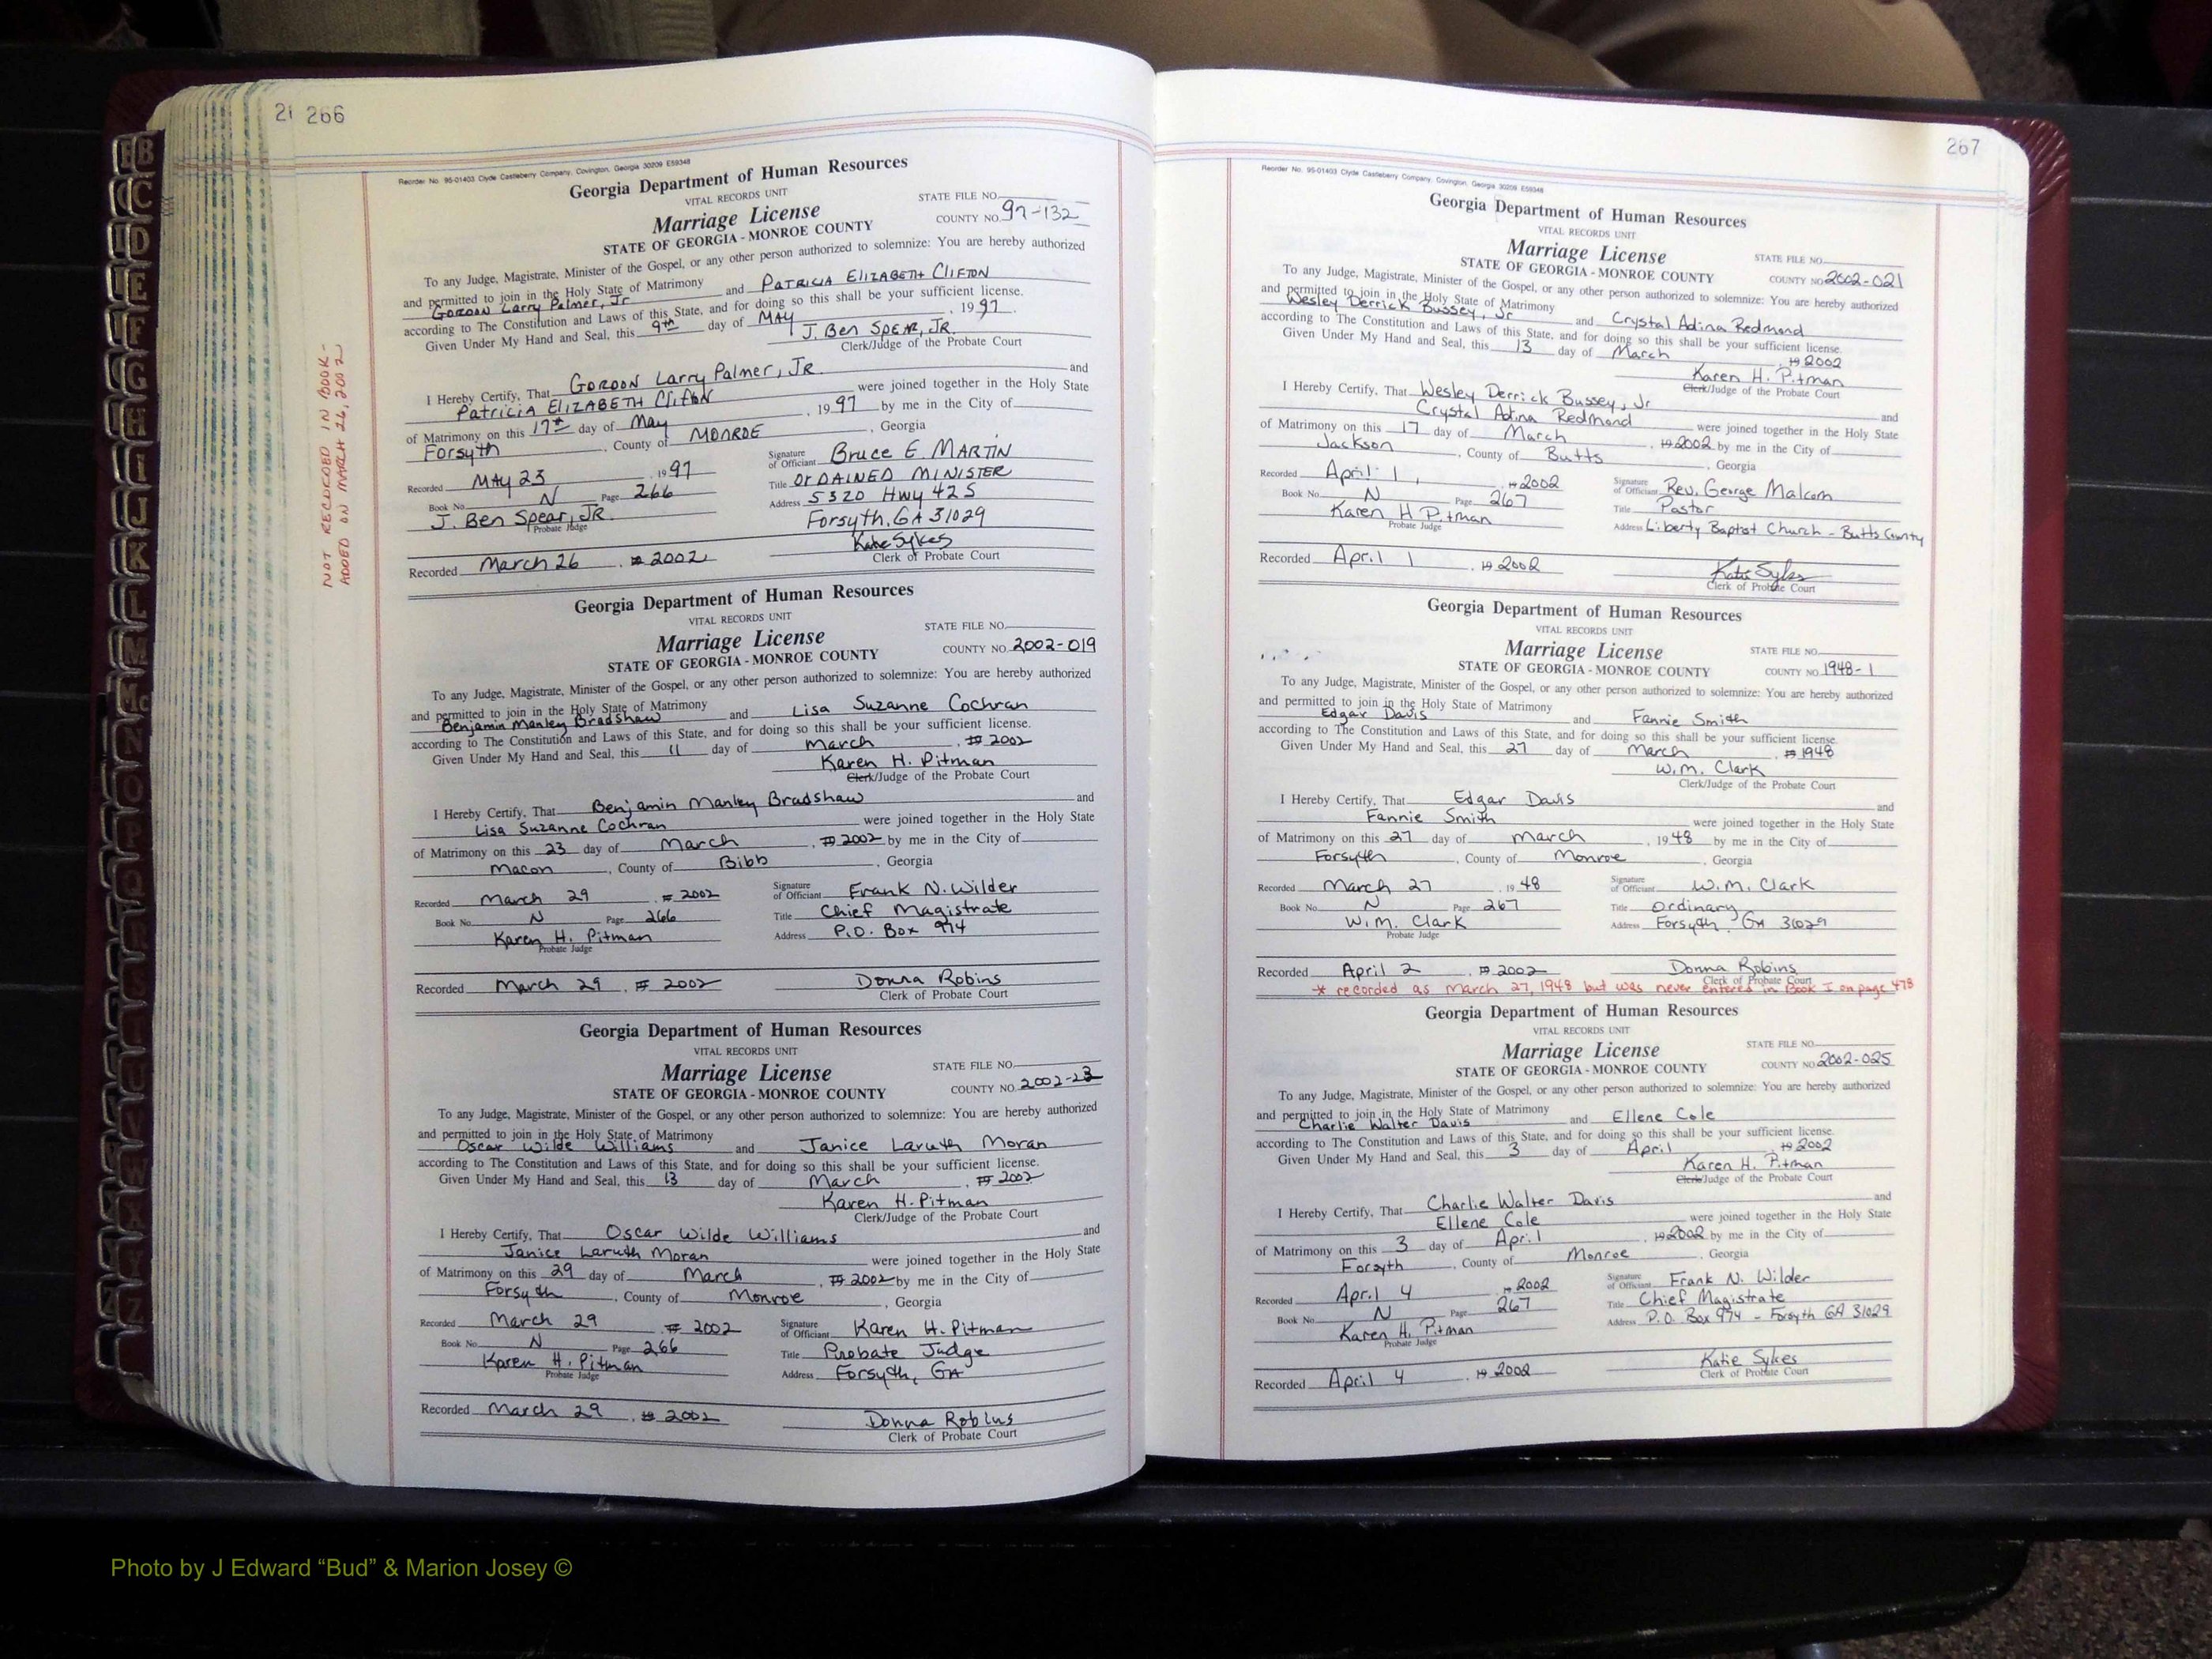 21 266
Reorder No. 95-01403 Clyde Castleberry Company, Covington, Georgia 30209 E59348
Georgia Department of Human Resources
VITAL RECORDS UNIT
Marriage License
STATE OF GEORGIA - MONROE COUNTY
STATE FILE NO.
COUNTY NO. 97-132
To any Judge, Magistrate, Minister of the Gospel, or any other person authorized to solemnize: You are hereby authorized
and permitted to join in the Holy State of Matrimony
Gordon Larry Palmer, Jr and PATRICIA ELIZABETH CLIFTON
according to The Constitution and Laws of this State, and for doing so this shall be your sufficient license.
Given Under My Hand and Seal, this 9th day of MAY , 1997.
J. Ben SPEAR, JR.
Clerk/Judge of the Probate Court
I Hereby Certify, That GORDON Larry Palmer, JR and
Patricia ELIZABETH Clifton were joined together in the Holy State
of Matrimony on this 17th day of May , 1997 by me in the City of
Forsyth , County of MONROE , Georgia
Recorded MAY 23 , 1997
Book No. N Page 266
J. Ben Spear, JR.
Probate Judge
Signature of Officiant Bruce E MARTIN
Title OrDAINED MINISTER
Address 5320 HWY 42 S
Forsyth, GA 31029
Katie Sykes
Clerk of Probate Court
Recorded March 26 , 19 2002
NOT RECORDED IN BOOK -
ADDED ON MARCH 26, 2002
Georgia Department of Human Resources
VITAL RECORDS UNIT
Marriage License
STATE OF GEORGIA - MONROE COUNTY
STATE FILE NO.
COUNTY NO. 2002-019
To any Judge, Magistrate, Minister of the Gospel, or any other person authorized to solemnize: You are hereby authorized
and permitted to join in the Holy State of Matrimony
Benjamin Manley Bradshaw and Lisa Suzanne Cochran
according to The Constitution and Laws of this State, and for doing so this shall be your sufficient license.
Given Under My Hand and Seal, this 11 day of March , 19 2002
Karen H. Pitman
Clerk/Judge of the Probate Court
I Hereby Certify, That Benjamin Manley Bradshaw and
Lisa Suzanne Cochran were joined together in the Holy State
of Matrimony on this 23 day of March , 19 2002 by me in the City of
Macon , County of Bibb , Georgia
Recorded March 29 , 19 2002
Book No. N Page 266
Karen H. Pitman
Probate Judge
Signature of Officiant Frank N. Wilder
Title Chief Magistrate
Address P.O. Box 974
Recorded March 29 , 19 2002
Donna Robins
Clerk of Probate Court
Georgia Department of Human Resources
VITAL RECORDS UNIT
Marriage License
STATE OF GEORGIA - MONROE COUNTY
STATE FILE NO.
COUNTY NO. 2002-23
To any Judge, Magistrate, Minister of the Gospel, or any other person authorized to solemnize: You are hereby authorized
and permitted to join in the Holy State of Matrimony
Oscar Wilde Williams and Janice Laruth Moran
according to The Constitution and Laws of this State, and for doing so this shall be your sufficient license.
Given Under My Hand and Seal, this 13 day of March , 19 2002
Karen H. Pitman
Clerk/Judge of the Probate Court
I Hereby Certify, That Oscar Wilde Williams and
Janice Laruth Moran were joined together in the Holy State
of Matrimony on this 29 day of March , 19 2002 by me in the City of
Forsyth , County of Monroe , Georgia
Recorded March 29 , 19 2002
Book No. N Page 266
Karen H. Pitman
Probate Judge
Signature of Officiant Karen H. Pitman
Title Probate Judge
Address Forsyth, GA
Recorded March 29 , 19 2002
Donna Robins
Clerk of Probate Court
267
Reorder No. 95-01403 Clyde Castleberry Company, Covington, Georgia 30209 E59348
Georgia Department of Human Resources
VITAL RECORDS UNIT
Marriage License
STATE OF GEORGIA - MONROE COUNTY
STATE FILE NO.
COUNTY NO. 2002-021
To any Judge, Magistrate, Minister of the Gospel, or any other person authorized to solemnize: You are hereby authorized
and permitted to join in the Holy State of Matrimony
Wesley Derrick Bussey, Jr and Crystal Adina Redmond
according to The Constitution and Laws of this State, and for doing so this shall be your sufficient license.
Given Under My Hand and Seal, this 13 day of March , 19 2002
Karen H. Pitman
Clerk/Judge of the Probate Court
I Hereby Certify, That Wesley Derrick Bussey, Jr and
Crystal Adina Redmond were joined together in the Holy State
of Matrimony on this 17 day of March , 19 2002 by me in the City of
Jackson , County of Butts , Georgia
Recorded April 1 , 19 2002
Book No. N Page 267
Karen H Pitman
Probate Judge
Signature of Officiant Rev. George Malcom
Title Pastor
Address Liberty Baptist Church - Butts County
Recorded April 1 , 19 2002
Katie Sykes
Clerk of Probate Court
Georgia Department of Human Resources
VITAL RECORDS UNIT
Marriage License
STATE OF GEORGIA - MONROE COUNTY
STATE FILE NO.
COUNTY NO. 1948-1
To any Judge, Magistrate, Minister of the Gospel, or any other person authorized to solemnize: You are hereby authorized
and permitted to join in the Holy State of Matrimony
Edgar Davis and Fannie Smith
according to The Constitution and Laws of this State, and for doing so this shall be your sufficient license.
Given Under My Hand and Seal, this 27 day of March , 19 1948
W.M. Clark
Clerk/Judge of the Probate Court
I Hereby Certify, That Edgar Davis and
Fannie Smith were joined together in the Holy State
of Matrimony on this 27 day of March , 1948 by me in the City of
Forsyth , County of Monroe , Georgia
Recorded March 27 , 1948
Book No. N Page 267
W.M. Clark
Probate Judge
Signature of Officiant W.M. Clark
Title Ordinary
Address Forsyth, GA 31029
Recorded April 2 , 19 2002
Donna Robins
Clerk of Probate Court
* recorded as March 27, 1948 but was never entered in Book I on page 478
Georgia Department of Human Resources
VITAL RECORDS UNIT
Marriage License
STATE OF GEORGIA - MONROE COUNTY
STATE FILE NO.
COUNTY NO. 2002-025
To any Judge, Magistrate, Minister of the Gospel, or any other person authorized to solemnize: You are hereby authorized
and permitted to join in the Holy State of Matrimony
Charlie Walter Davis and Ellene Cole
according to The Constitution and Laws of this State, and for doing so this shall be your sufficient license.
Given Under My Hand and Seal, this 3 day of April , 19 2002
Karen H. Pitman
Clerk/Judge of the Probate Court
I Hereby Certify, That Charlie Walter Davis and
Ellene Cole were joined together in the Holy State
of Matrimony on this 3 day of April , 19 2002 by me in the City of
Forsyth , County of Monroe , Georgia
Recorded April 4 , 19 2002
Book No. N Page 267
Karen H. Pitman
Probate Judge
Signature of Officiant Frank N. Wilder
Title Chief Magistrate
Address P.O. Box 974 - Forsyth GA 31029
Recorded April 4 , 19 2002
Katie Sykes
Clerk of Probate Court
B
C
D
E
F
G
H
I
J
K
L
M
Mc
N
O
P
Q
R
Z
Photo by J Edward “Bud” & Marion Josey ©